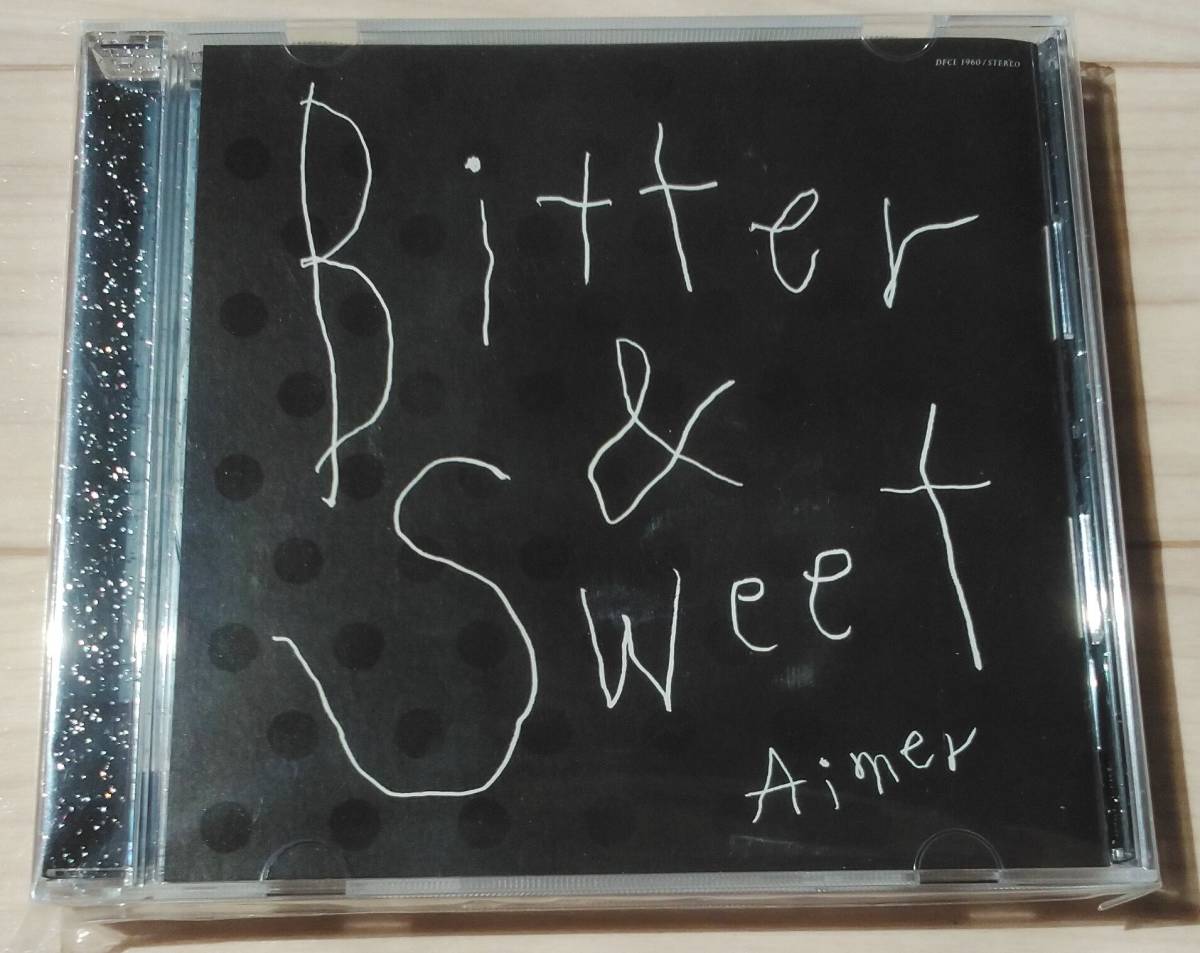 DFCL 1960 / STEREO
Bitter
&
Sweet
Aimer